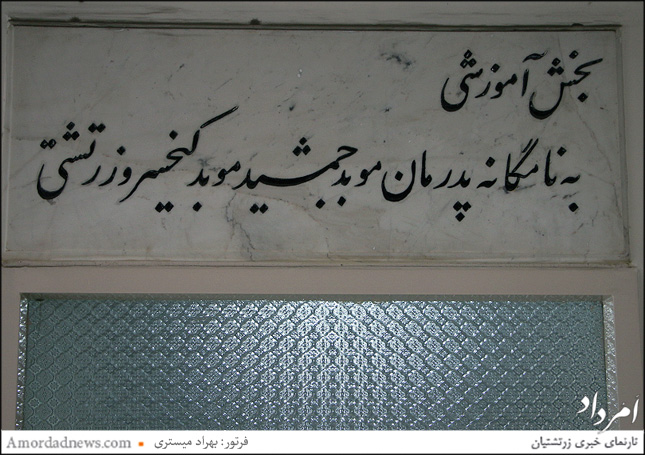 بخش آموزشی
به نامگانه پدرمان موبد جمشید موبد کیخسرو زرتشتی
امرداد
تارنمای خبری زرتشتیان
فرتور: بهراد میستری
Amordadnews.com